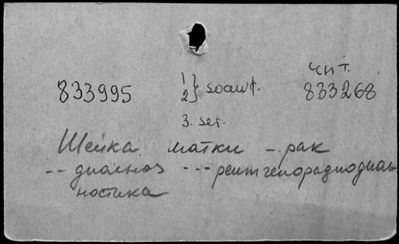 чит.
833995 1 2 } soavt. 833268
3. ser.
Шейка матки - рак
-- диагноз --- рентгенорадиодиаг
ностика